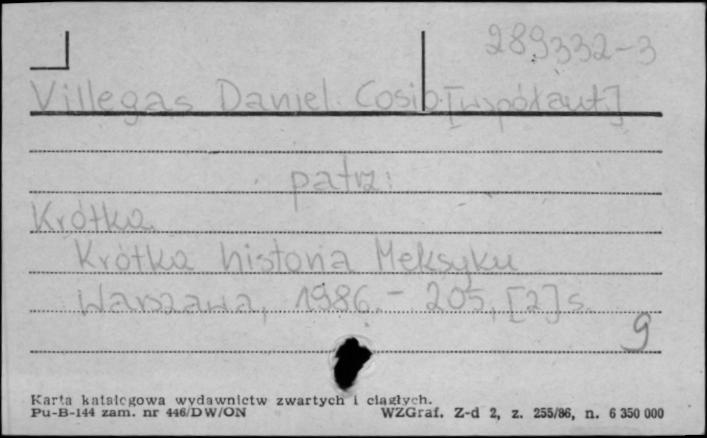 289332-3
Villegas Daniel Cosio [współaut.]
patrz:
Krótka
Krótka historia Meksyku
Warszawa, 1986. - 205, [2] s.
9
Karta katalogowa wydawnictw zwartych i ciągłych.
Pu-B-144 zam. nr 446/DW/ON WZGraf. Z-d 2, z. 255/86, n. 6 350 000